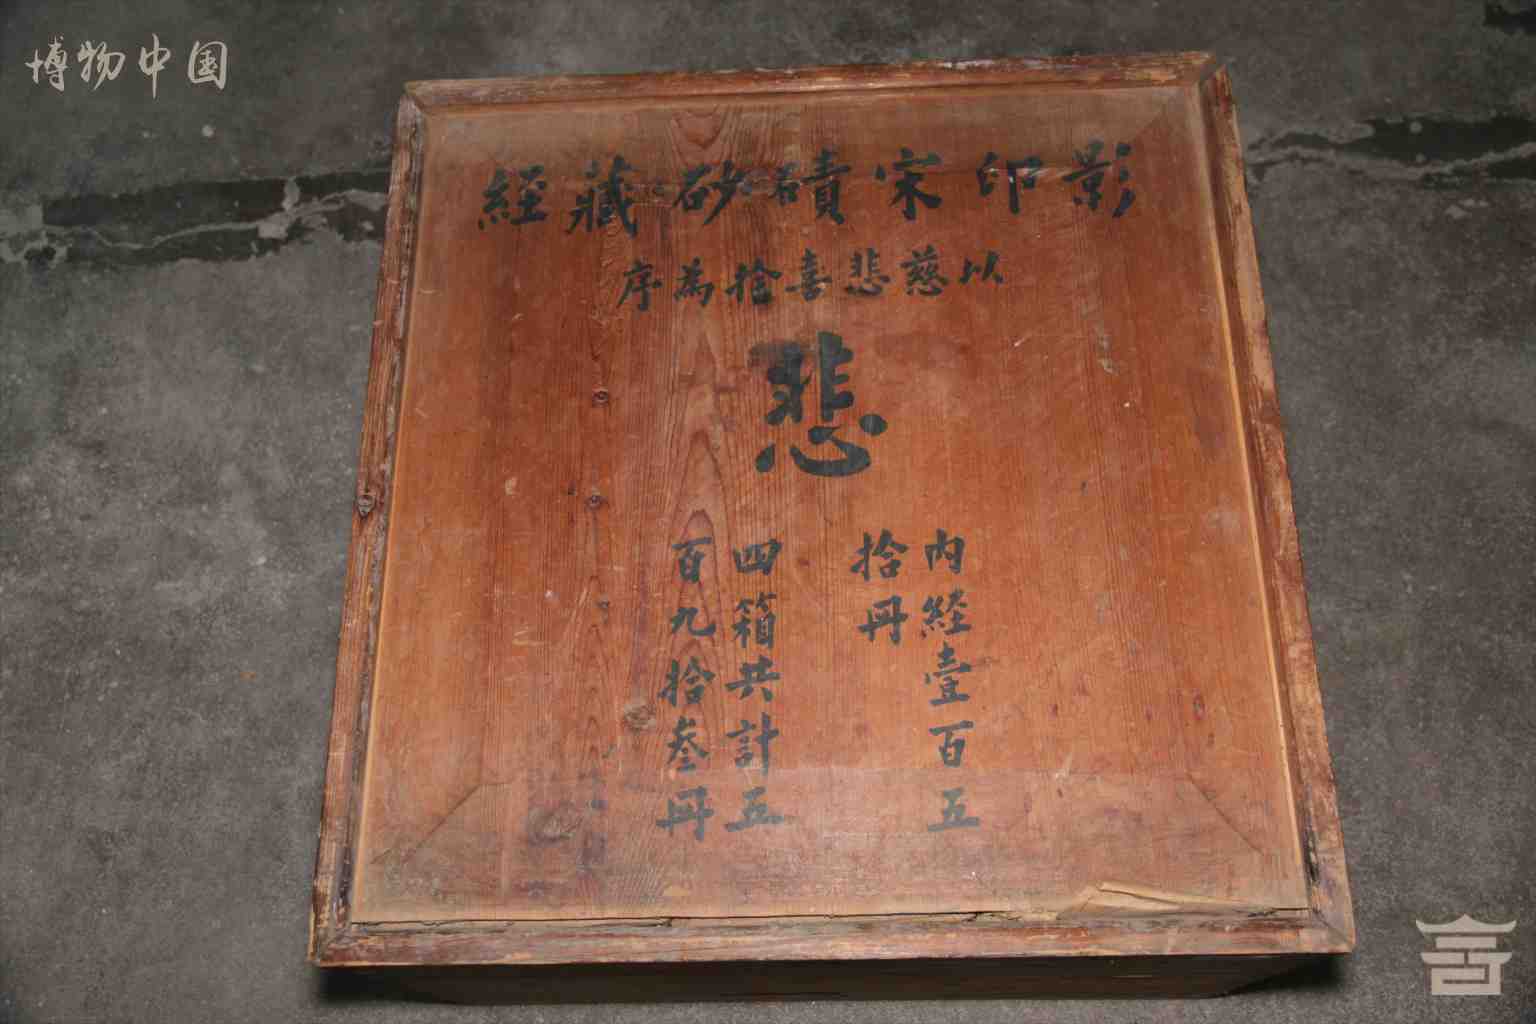 博物中国
影印宋磧砂藏經
以慈悲喜捨為序
悲
内經壹百五
拾冊
四箱共計五
百九拾叁冊